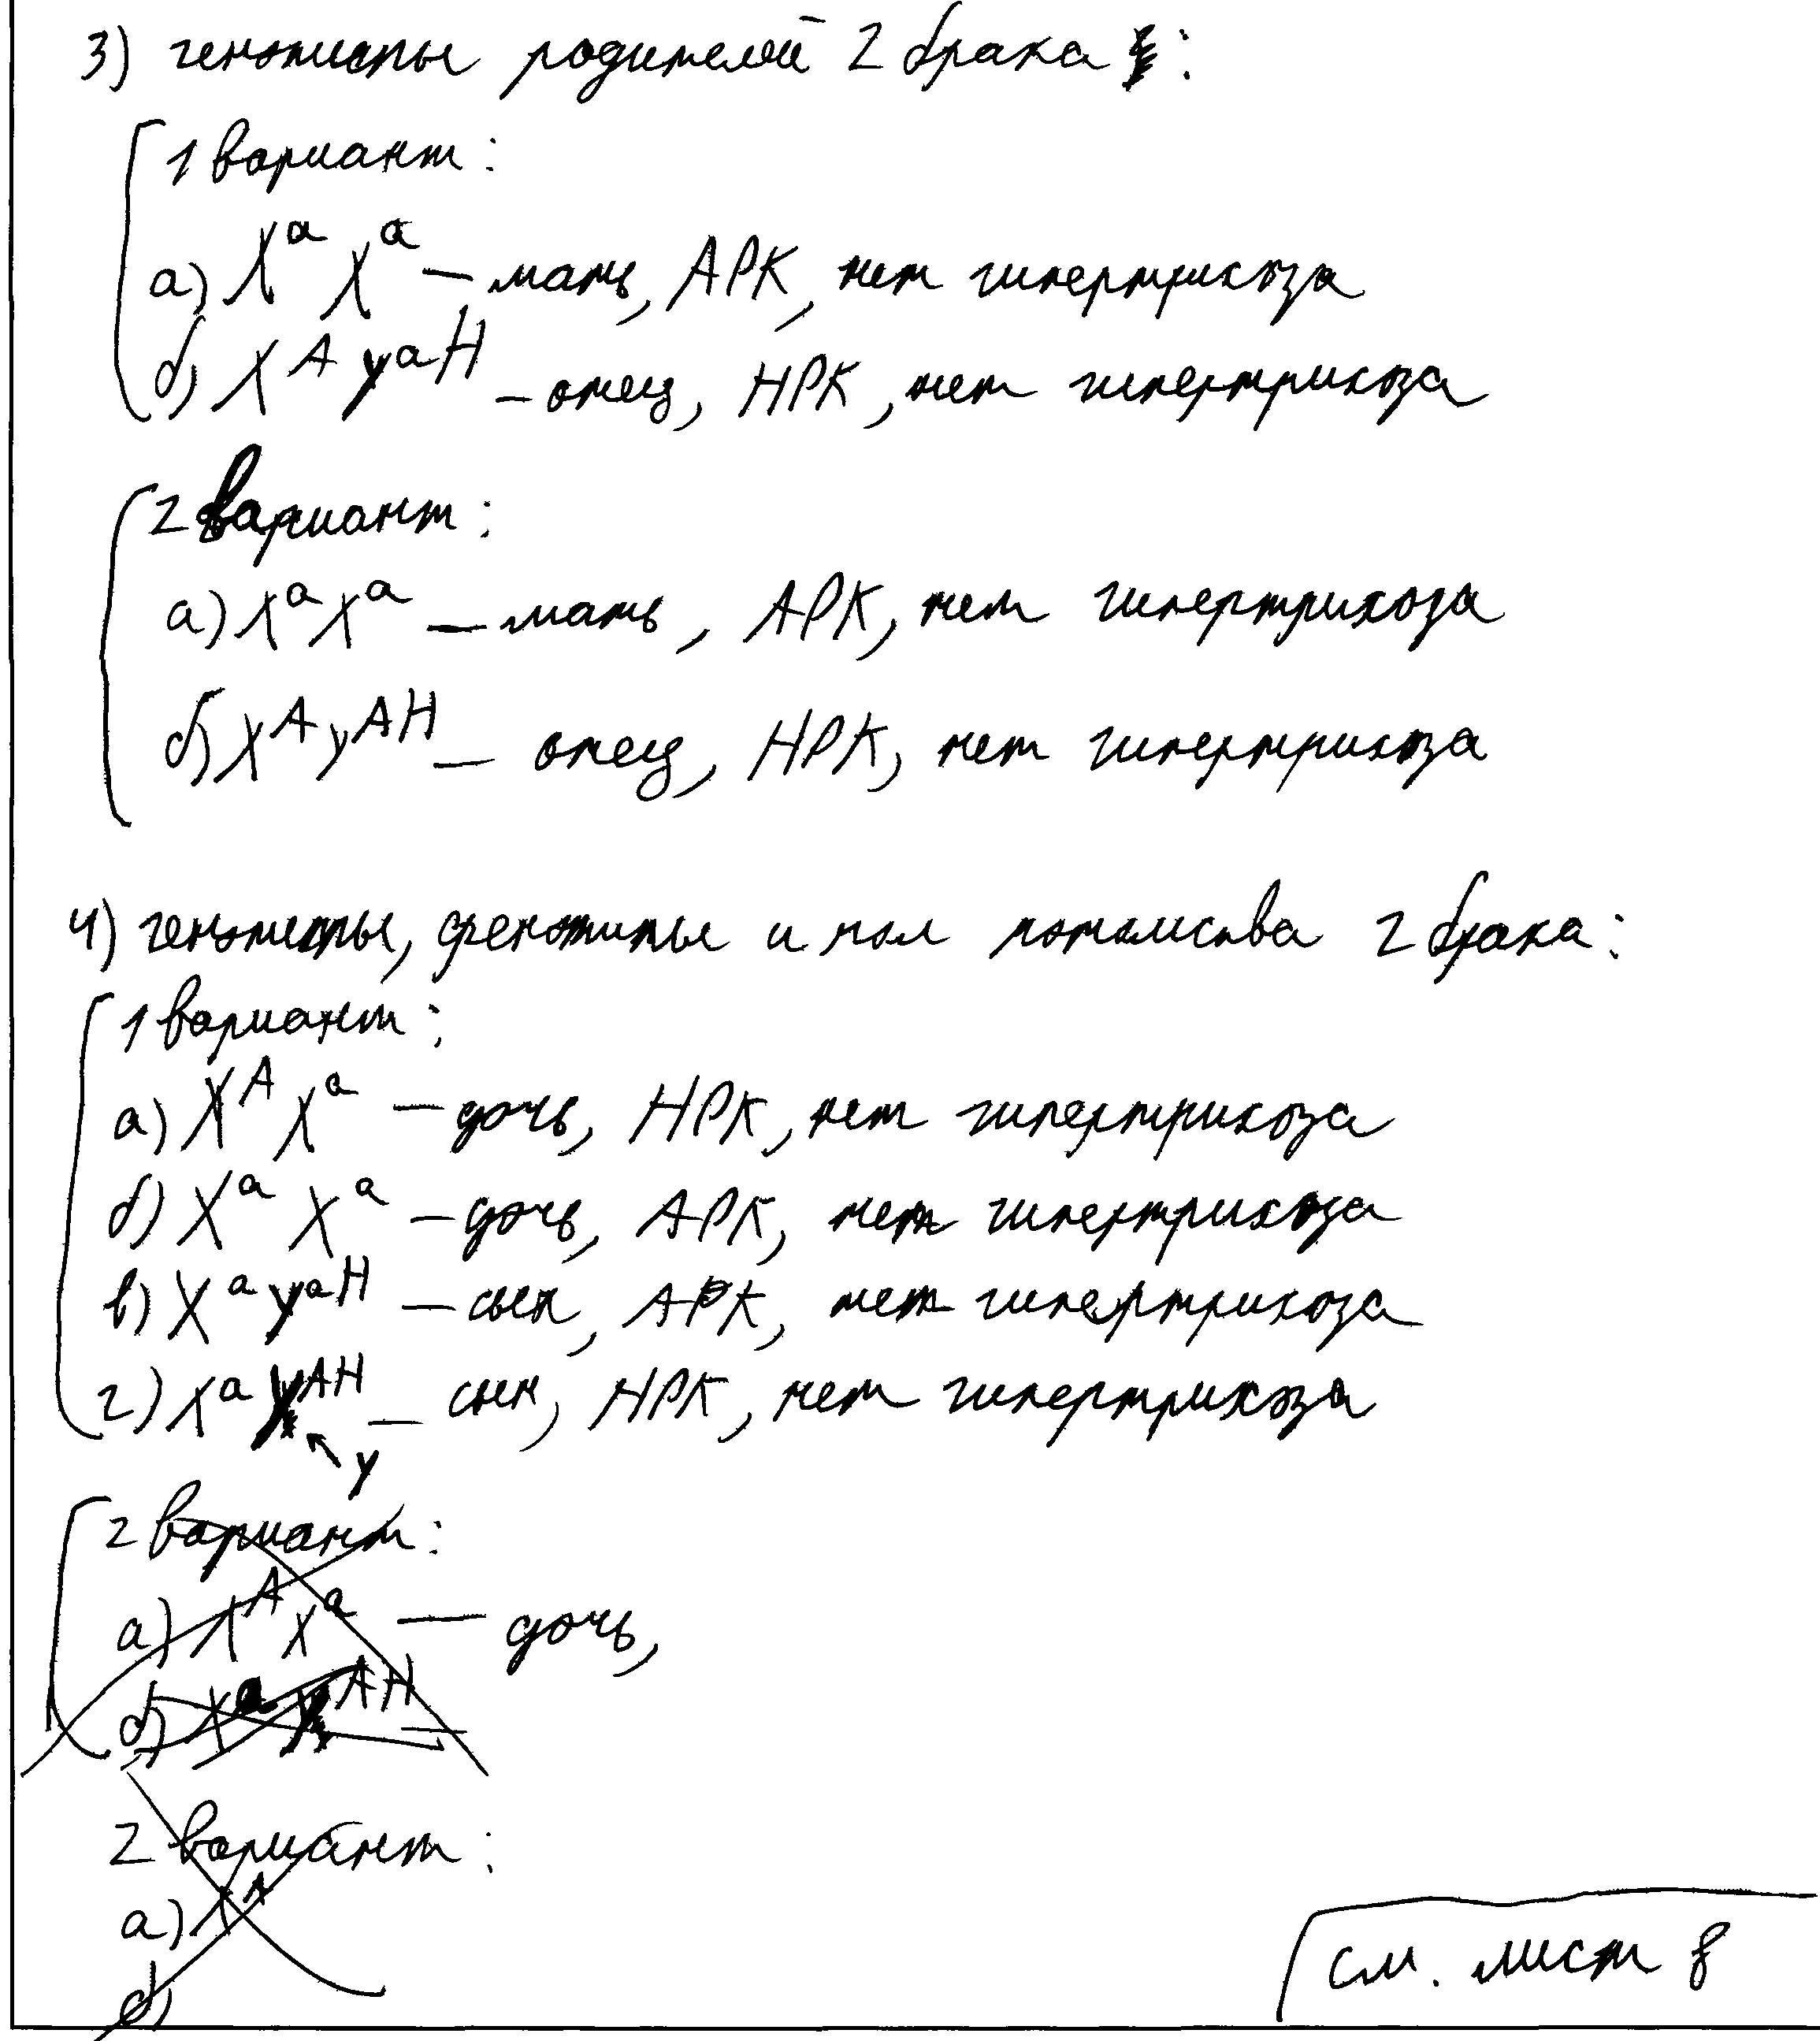 3) генотипы родителей 2 брака :
1 вариант :
а) XᵃXᵃ — мать, АРК, нет гипертрихоза
б) Xᴬ Yᵃᴴ — отец, НРК, нет гипертрихоза
2 вариант :
а) XᵃXᵃ — мать, АРК, нет гипертрихоза
б) XᴬYᴬᴴ — отец, НРК, нет гипертрихоза
4) генотипы, фенотипы и пол потомства 2 брака :
1 вариант :
а) XᴬXᵃ — дочь, НРК, нет гипертрихоза
б) Xᵃ Xᵃ — дочь, АРК, нет гипертрихоза
в) Xᵃ Yᵃᴴ — сын, АРК, нет гипертрихоза
г) Xᵃ Yᴬᴴ — сын, НРК, нет гипертрихоза
Y
2 вариант :
а) XᴬXᵃ — дочь,
б) Xᵃ Yᴬᴴ —
2 вариант :
а) Xᴬ
б)
см. лист 8